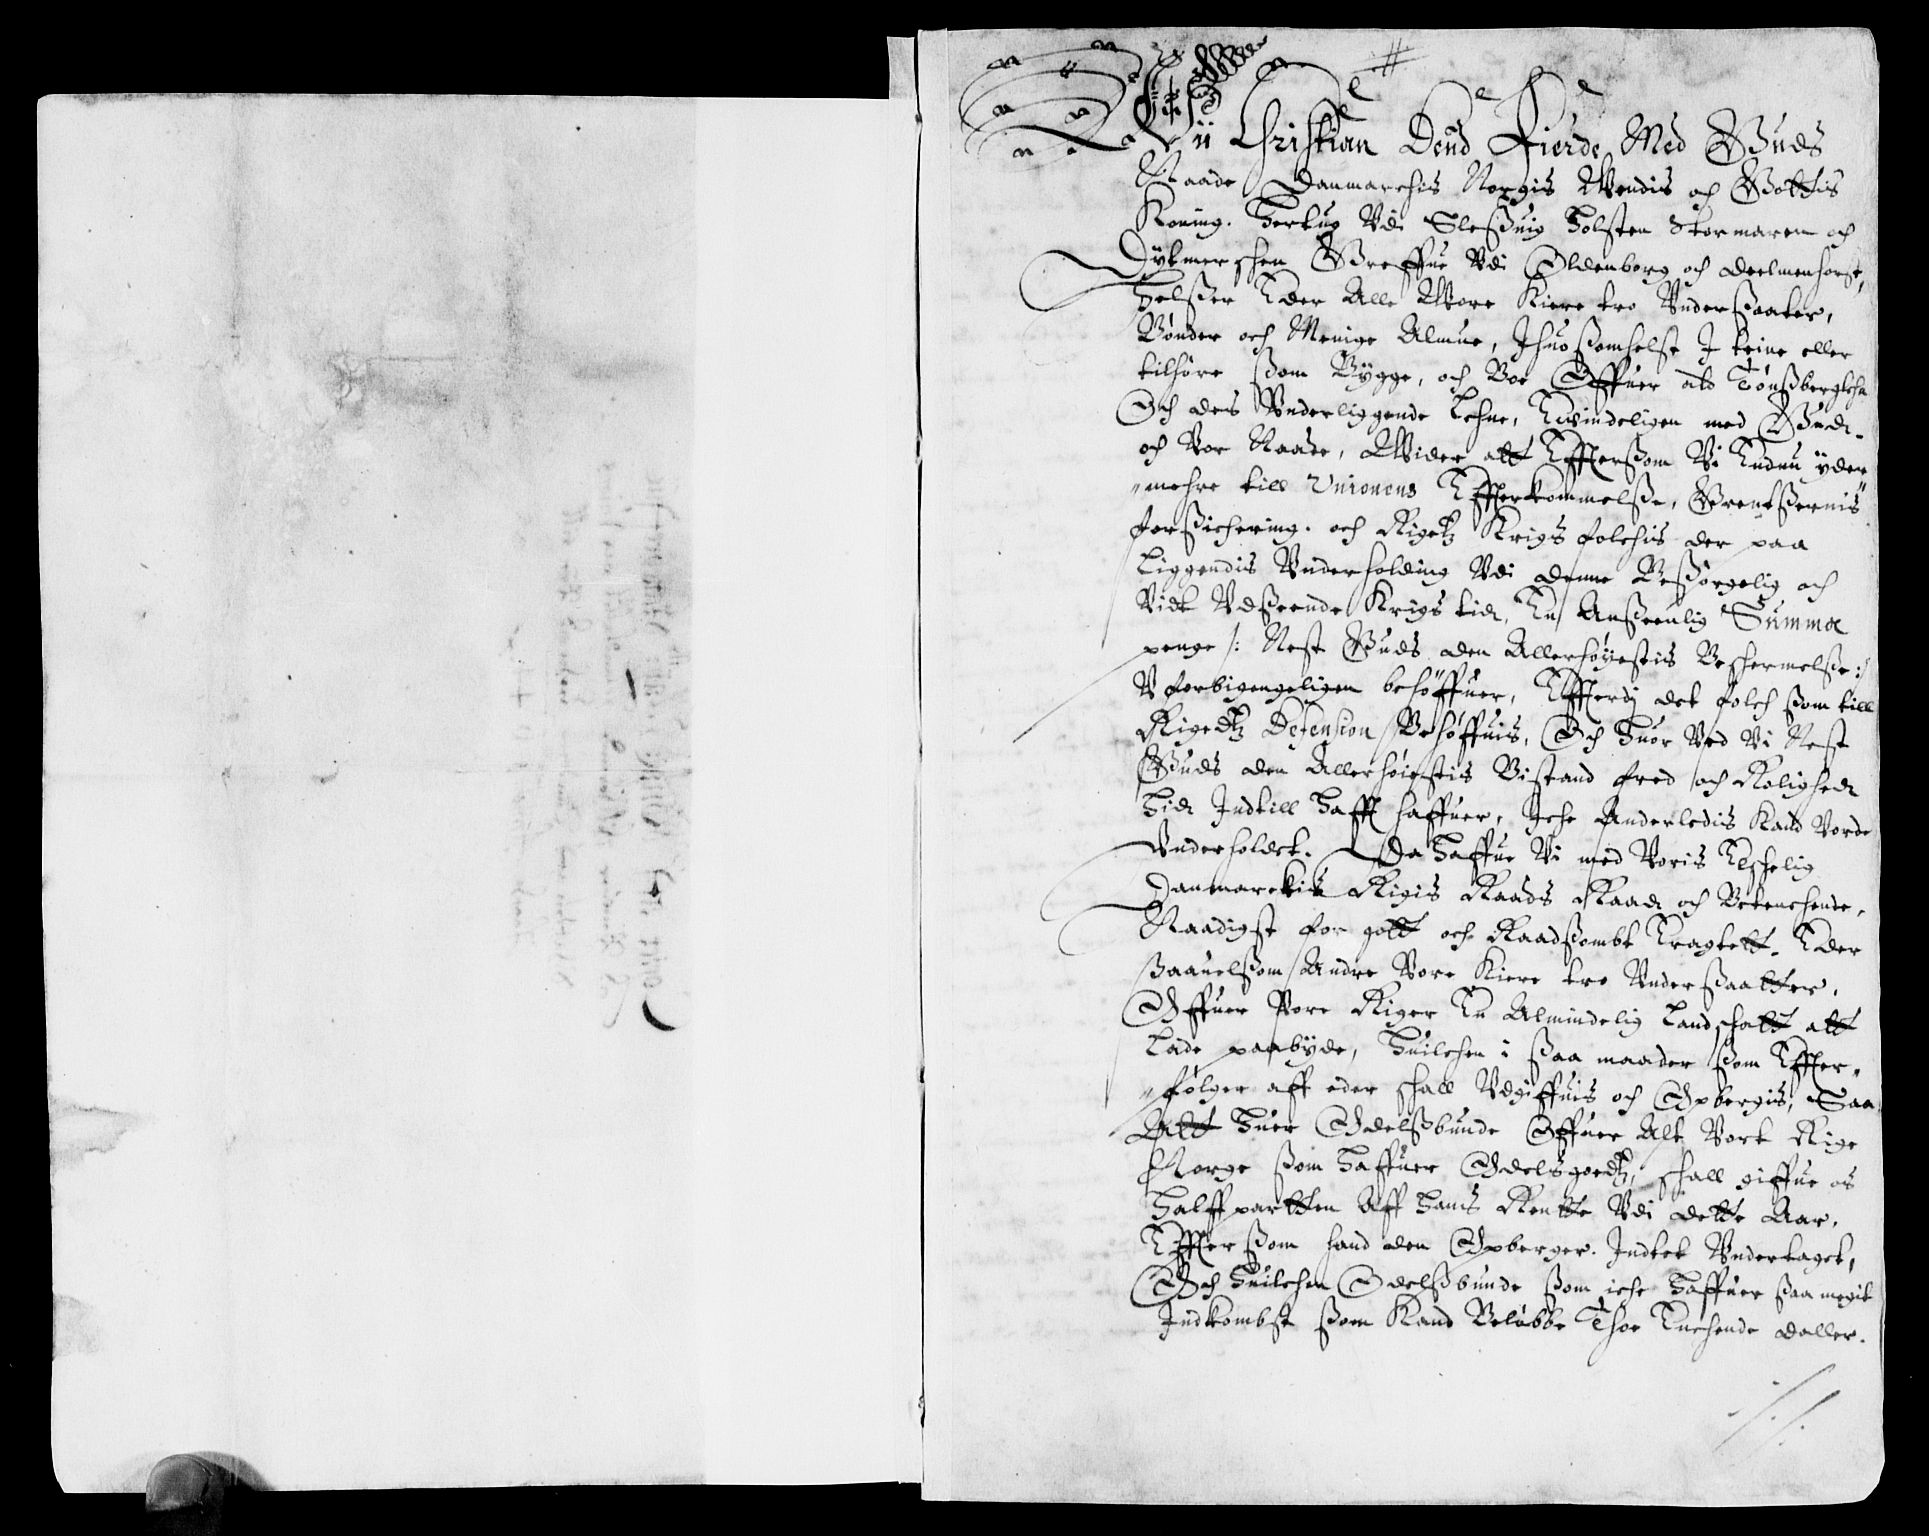 Wii Christian Dend Fierde, Med Guds
Naade Danmarchis Norgis Wendis och Gottis
Koning. Hertug Udi Sleßuig Holsten Stormaren och
Dytmerschen Greffue Udi Oldenborg och Deelmenhorst,
Helßer Eder Alle Wore Kiere tro Underßaater,
Bønder och Menige Almue, Ihuo ßomhelst I teine eller
tilhøre ßom Bygge, och Boe Offuer ald Tønßberg lehn
Och des Underliggende Lehne, Ewindeligen med Gud.
och Vor Naade, Wider att Effterßom Vi Endnu yder
"mehre till Unionens Effterkommelße, Grentßernis"
forßichering. och Rigetz Krigs folchis der paa
Liggendis Underholding Udi denne Beßørgelig och
Vidt Udßeende Krigs tid, En Anßeenlig Summa
penge /: Nest Guds den Allerhøyestis Beschermelße :/
Uforbigengeligen behøffuer, Effterdj det folch ßom till
Rigedtz Defension Behøffuis, Och Huor Ved Vi Nest
Guds den Allerhøiestis Bistand fred och Rolighed
Hid Indtill Hafft haffuer, Iche Anderledis Kand Vorde
Underholdet. Da Haffue Vi med Voris Elschelig
Danmarckis Rigis Raads Raad och Betenchende,
Naadigst for gott och Raadßombt Eragtett. Eder
ßaauelßom Andre Vore Kiere tro Underßaatter,
Offuer Vore Riger En Almindelig Landschatt att
Lade paabyde, Huilchen i ßaa maader ßom Effter"
"følger aff eder schall Udgiffuis och Opbergis, Saa
Att Huer Odelßbunde Offuer Alt Vort Rige
Norge ßom Haffuer Odelsgoedtz, schall giffue os
Halffpartten Aff Hans Rentte Udi dette Aar,
Effterßom hand den Opberger. Indtet Undertaget,
Och Huilchen Odelßbunde ßom iche Haffuer ßaa megit
Indkombst ßom Kand Beløbbe Thoe Enchende daller.